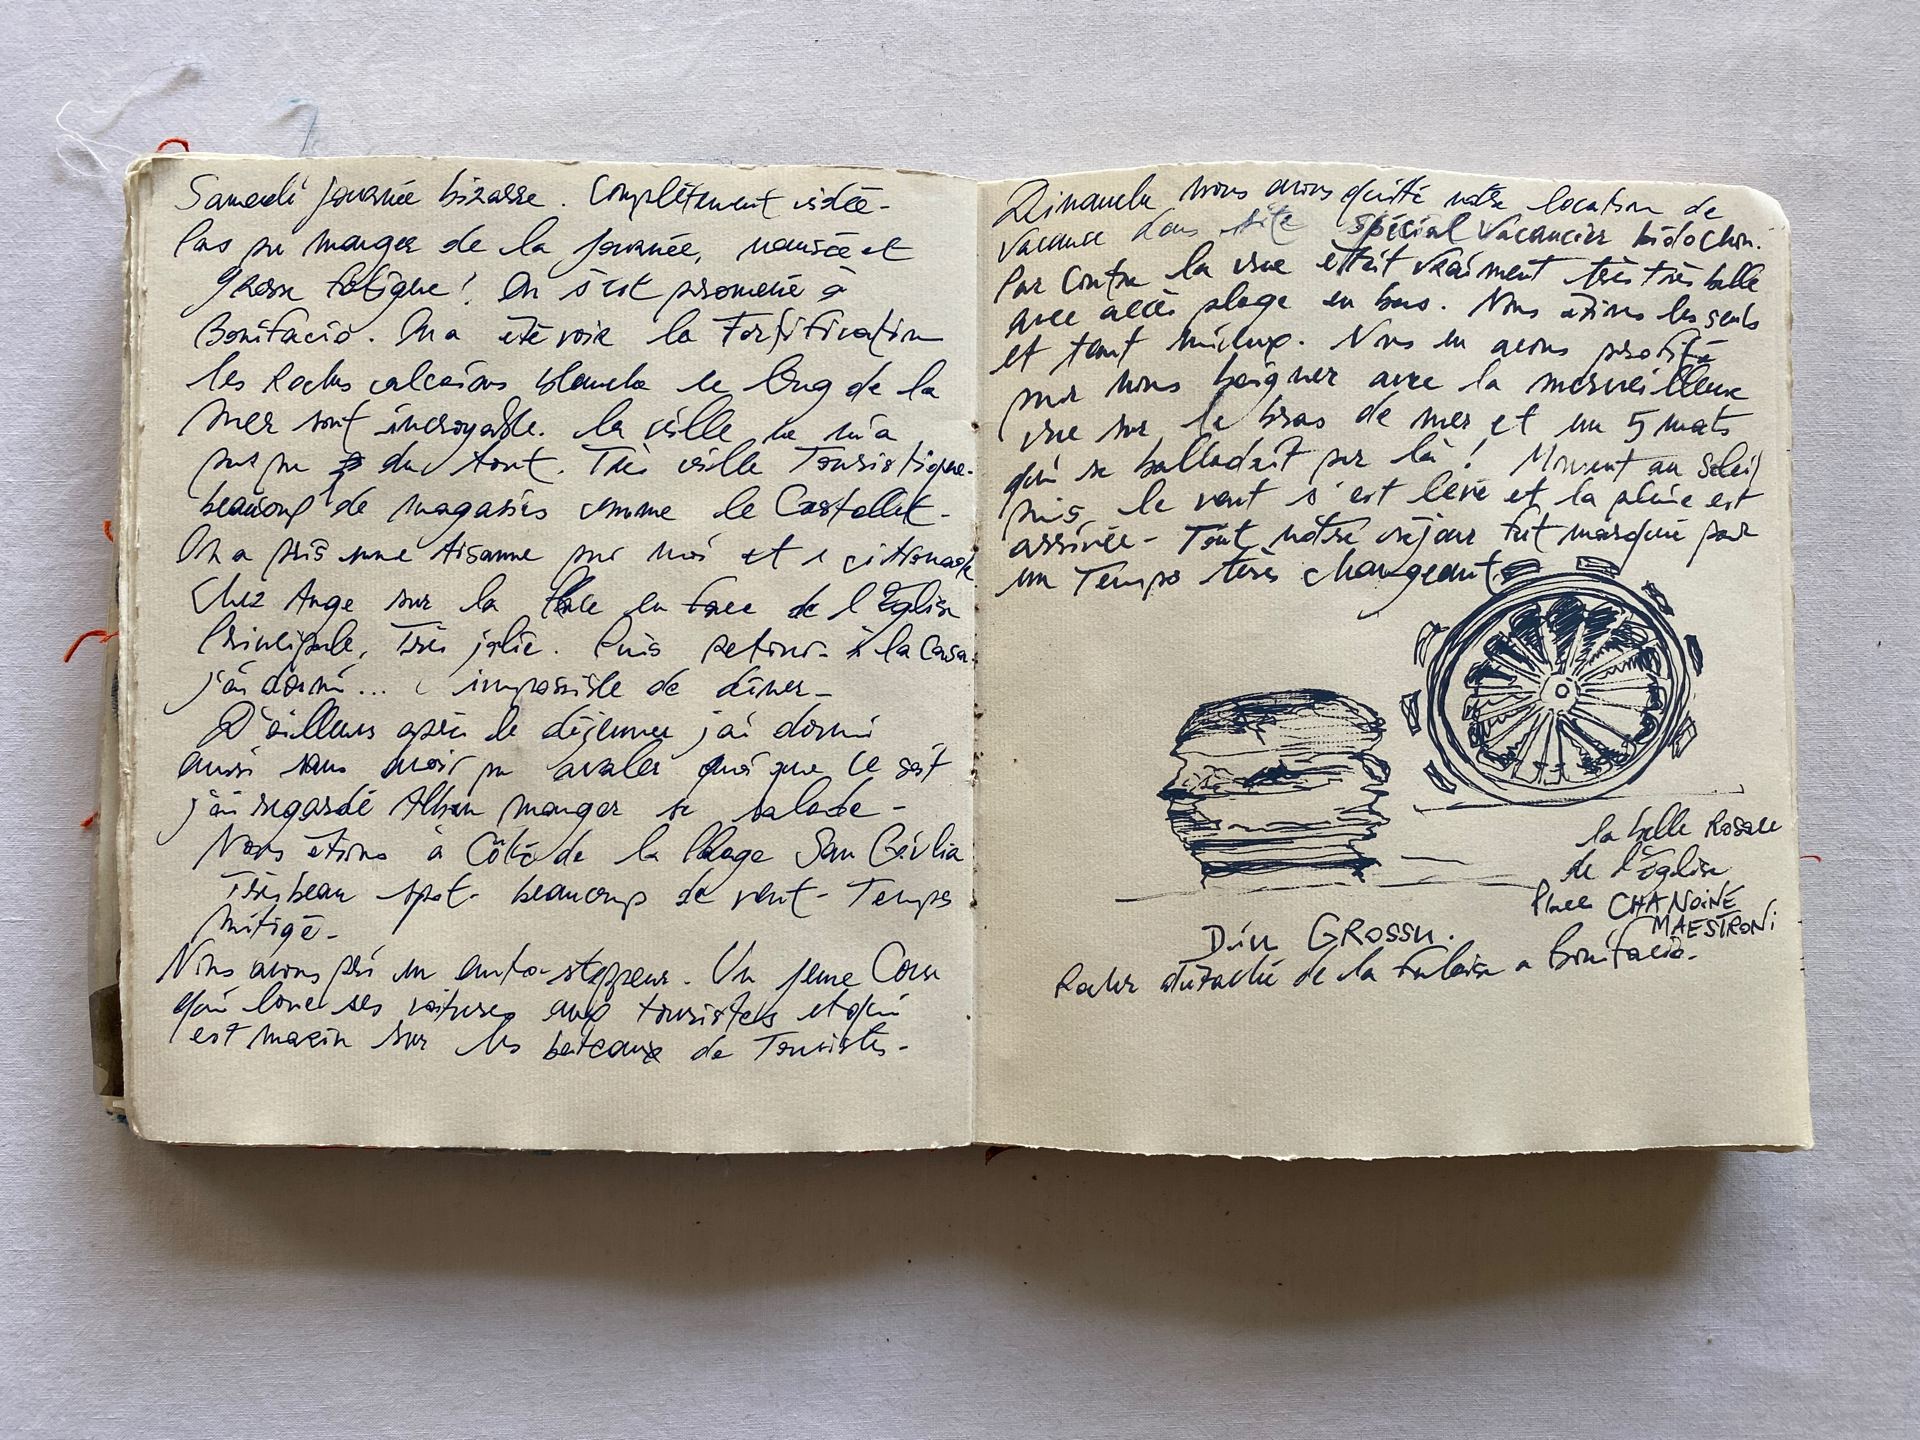 Samedi journée bizarre. Complètement vidée -
Pas pu manger de la journée, nausée et
grosse fatigue ! On s'est promené à
Bonifacio. On a été voir la Fortification
les Roches calcaires blanche le long de la
mer sont incroyable. La ville ne m'a
pas pu du tout. Très ville Touristique -
beaucoup de magasins comme le Castellet -
On a pris une tisane pour moi et 1 citronade
Chez Ange sur la Place en face de l'Eglise
Principale, Très jolie. Puis retour à la Casa
j'ai dormi... impossible de dîner -
D'ailleurs après le déjeuner j'ai dormi
aussi sans avoir pu avaler quoi que ce soit
j'ai regardé Alban manger sa salade -
Nous étions à Côté de la Plage San
Très beau spot - beaucoup de vent - Temps
mitigé -
Nous avons pris un auto-stoppeur. Un jeune Corse
qui loue ses voitures aux touristes et qui
est marin sur les bateaux de Touristes -
Dimanche nous avons quitté notre location de
vacance dans site spécial vacancier bidochon.
Par Contre la vue était vraiment très très belle
avec accès plage en bas. Nous étions les seuls
et tant mieux. Nous en avons profité
pour nous baigner avec la merveilleuse
vue sur le bras de mer et un 5 mats
qui se balladait par là ! Moment au soleil
puis le vent s'est levé et la pluie est
arrivée - Tout notre séjour fut marqué par
un Temps très changeant
la belle Rosace
de l'Eglise
Place CHANOINE
MAESTRONI
Bonifacio.
Diu GROSSU.
Rocher détaché de la falaise a